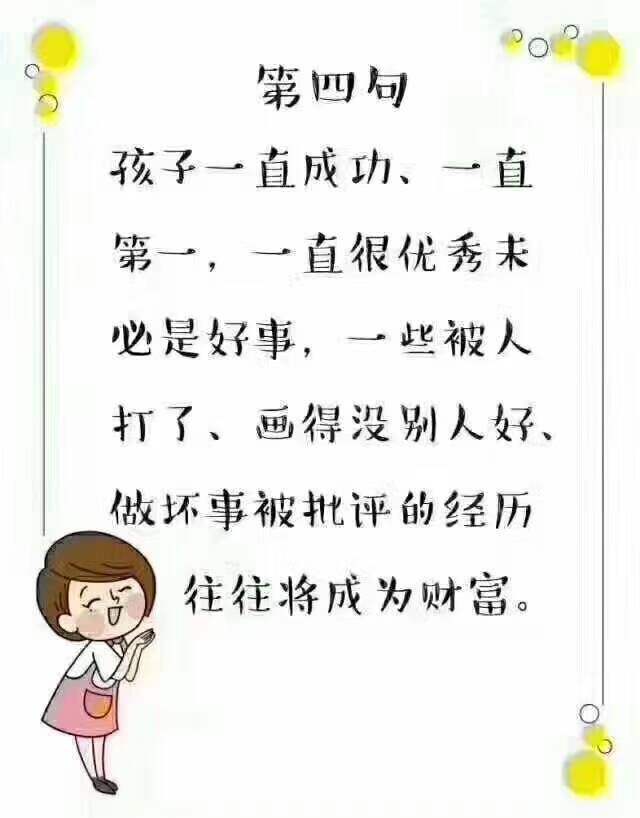 第四句
孩子一直成功、一直
第一，一直很优秀未
必是好事，一些被人
打了、画得没别人好、
做坏事被批评的经历
往往将成为财富。